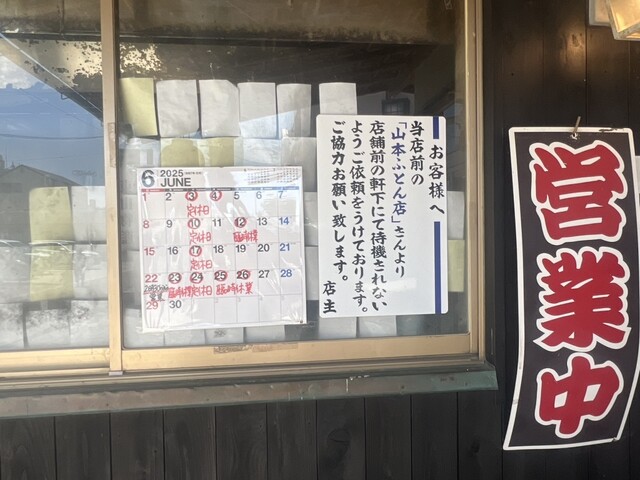 6 2025 JUNE
1 2 3 4 5 6 7
定休日
8 9 10 11 12 13 14
定休日 臨時休業
15 16 17 18 19 20 21
定休日
22 23 24 25 26 27 28
定休日 臨時休業
29 30
お客様へ
当店前の
「山本ふとん店」さんより
店舗前の軒下にて待機されない
ようご依頼をうけております。
ご協力お願い致します。
店主
営業中